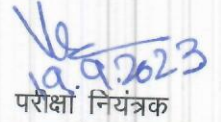 19.9.2023
परीक्षा नियंत्रक